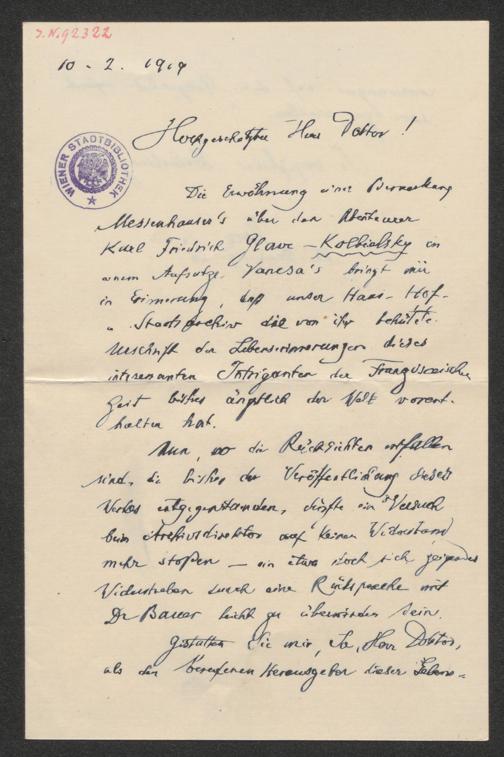 J.N. 92322
10 - 2. 1919
WIENER STADTBIBLIOTHEK
Hochgeschätzter Herr Doktor!
Die Erwähnung einer Bemerkung
Messenhauser's über den Abenteurer
Karl Friedrich Glave-Kolbielsky in
einem Aufsatze Vanesa's bringt mir
in Erinnerung, daß unser Haus- Hof-
u. Staatsarchiv die von ihr behütete
Urschrift der Lebenserinnerungen dieses
interessanten Intriganten der Franziszeischen
Zeit bisher ängstlich der Welt vorent-
halten hat.
Nun, wo die Rücksichten entfallen
sind, die bisher der Veröffentlichung dieses
Werkes entgegenstanden, dürfte ein Versuch
beim Archivdirektor auf keinen Widerstand
mehr stoßen — ein etwa noch sich zeigendes
Widerstreben durch eine Rücksprache mit
Dr Bauer leicht zu überwinden sein.
Gestatten Sie mir, Sie, Herr Doktor,
als den berufenen Herausgeber dieser Lebens-